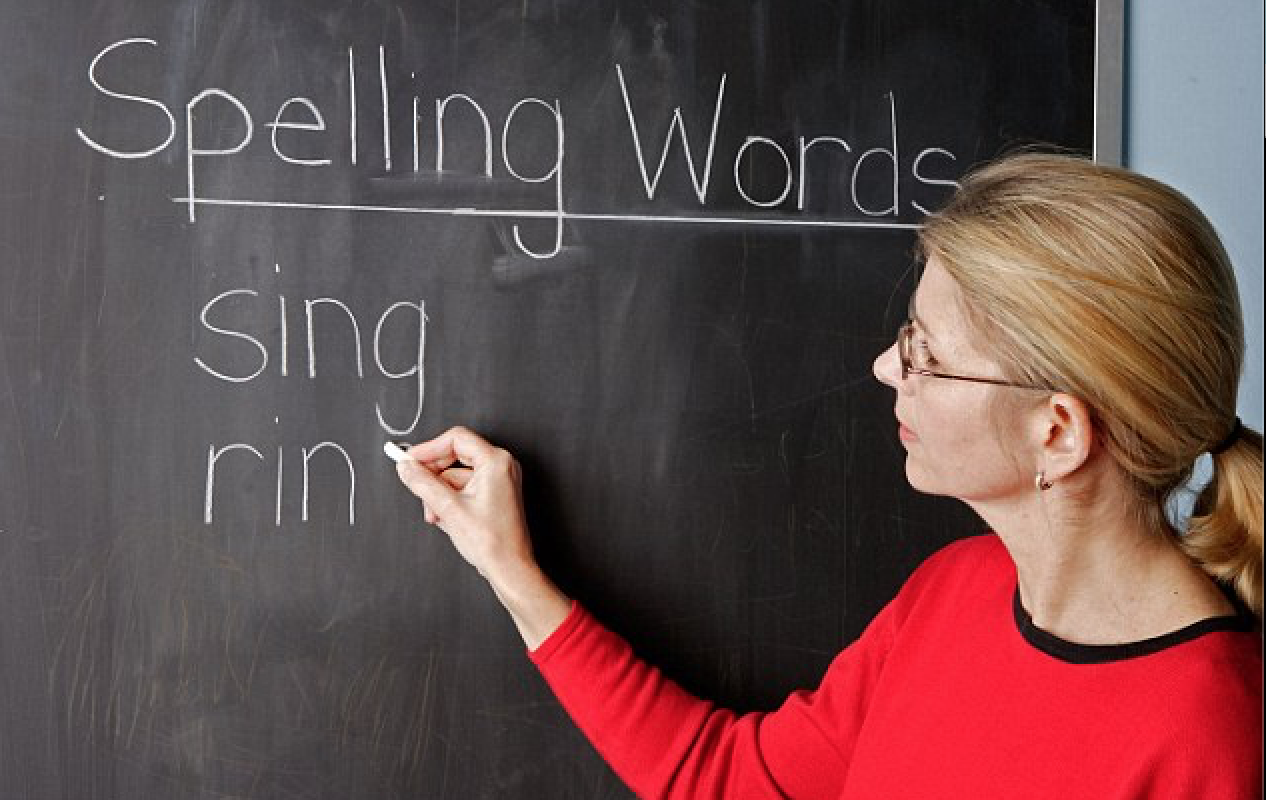 Spelling Words
sing
rin